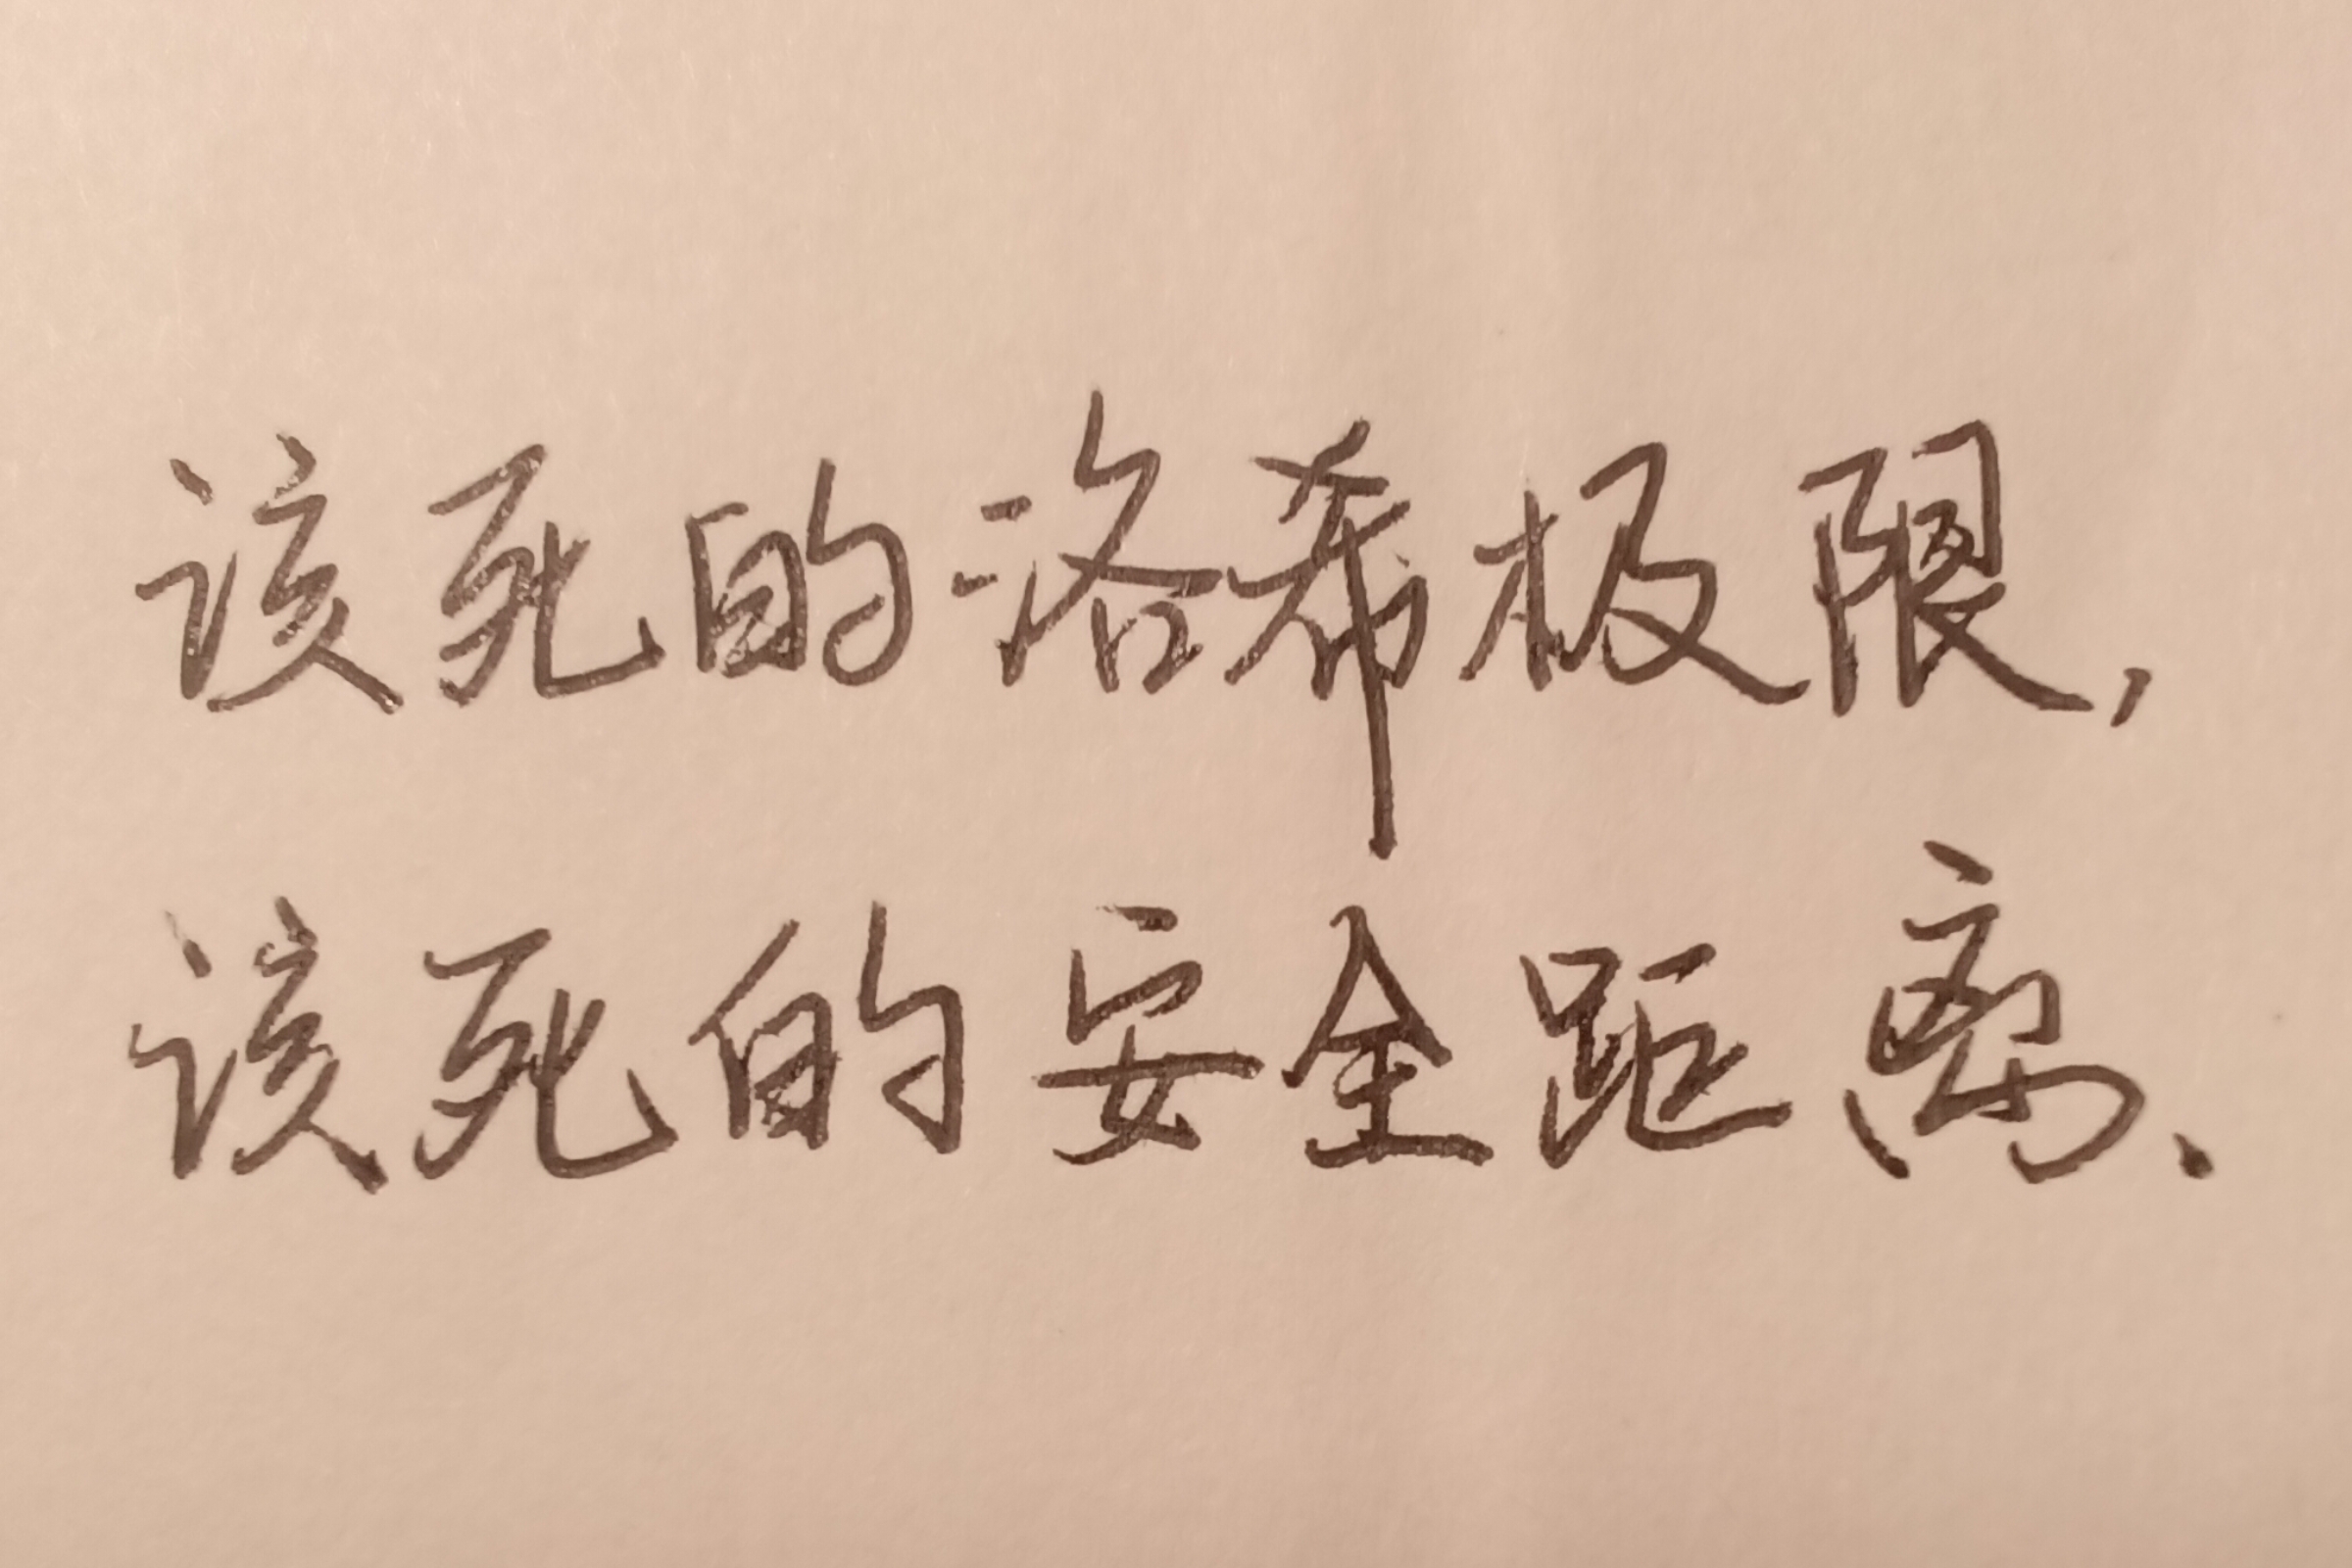 该死的洛希极限,
该死的安全距离、